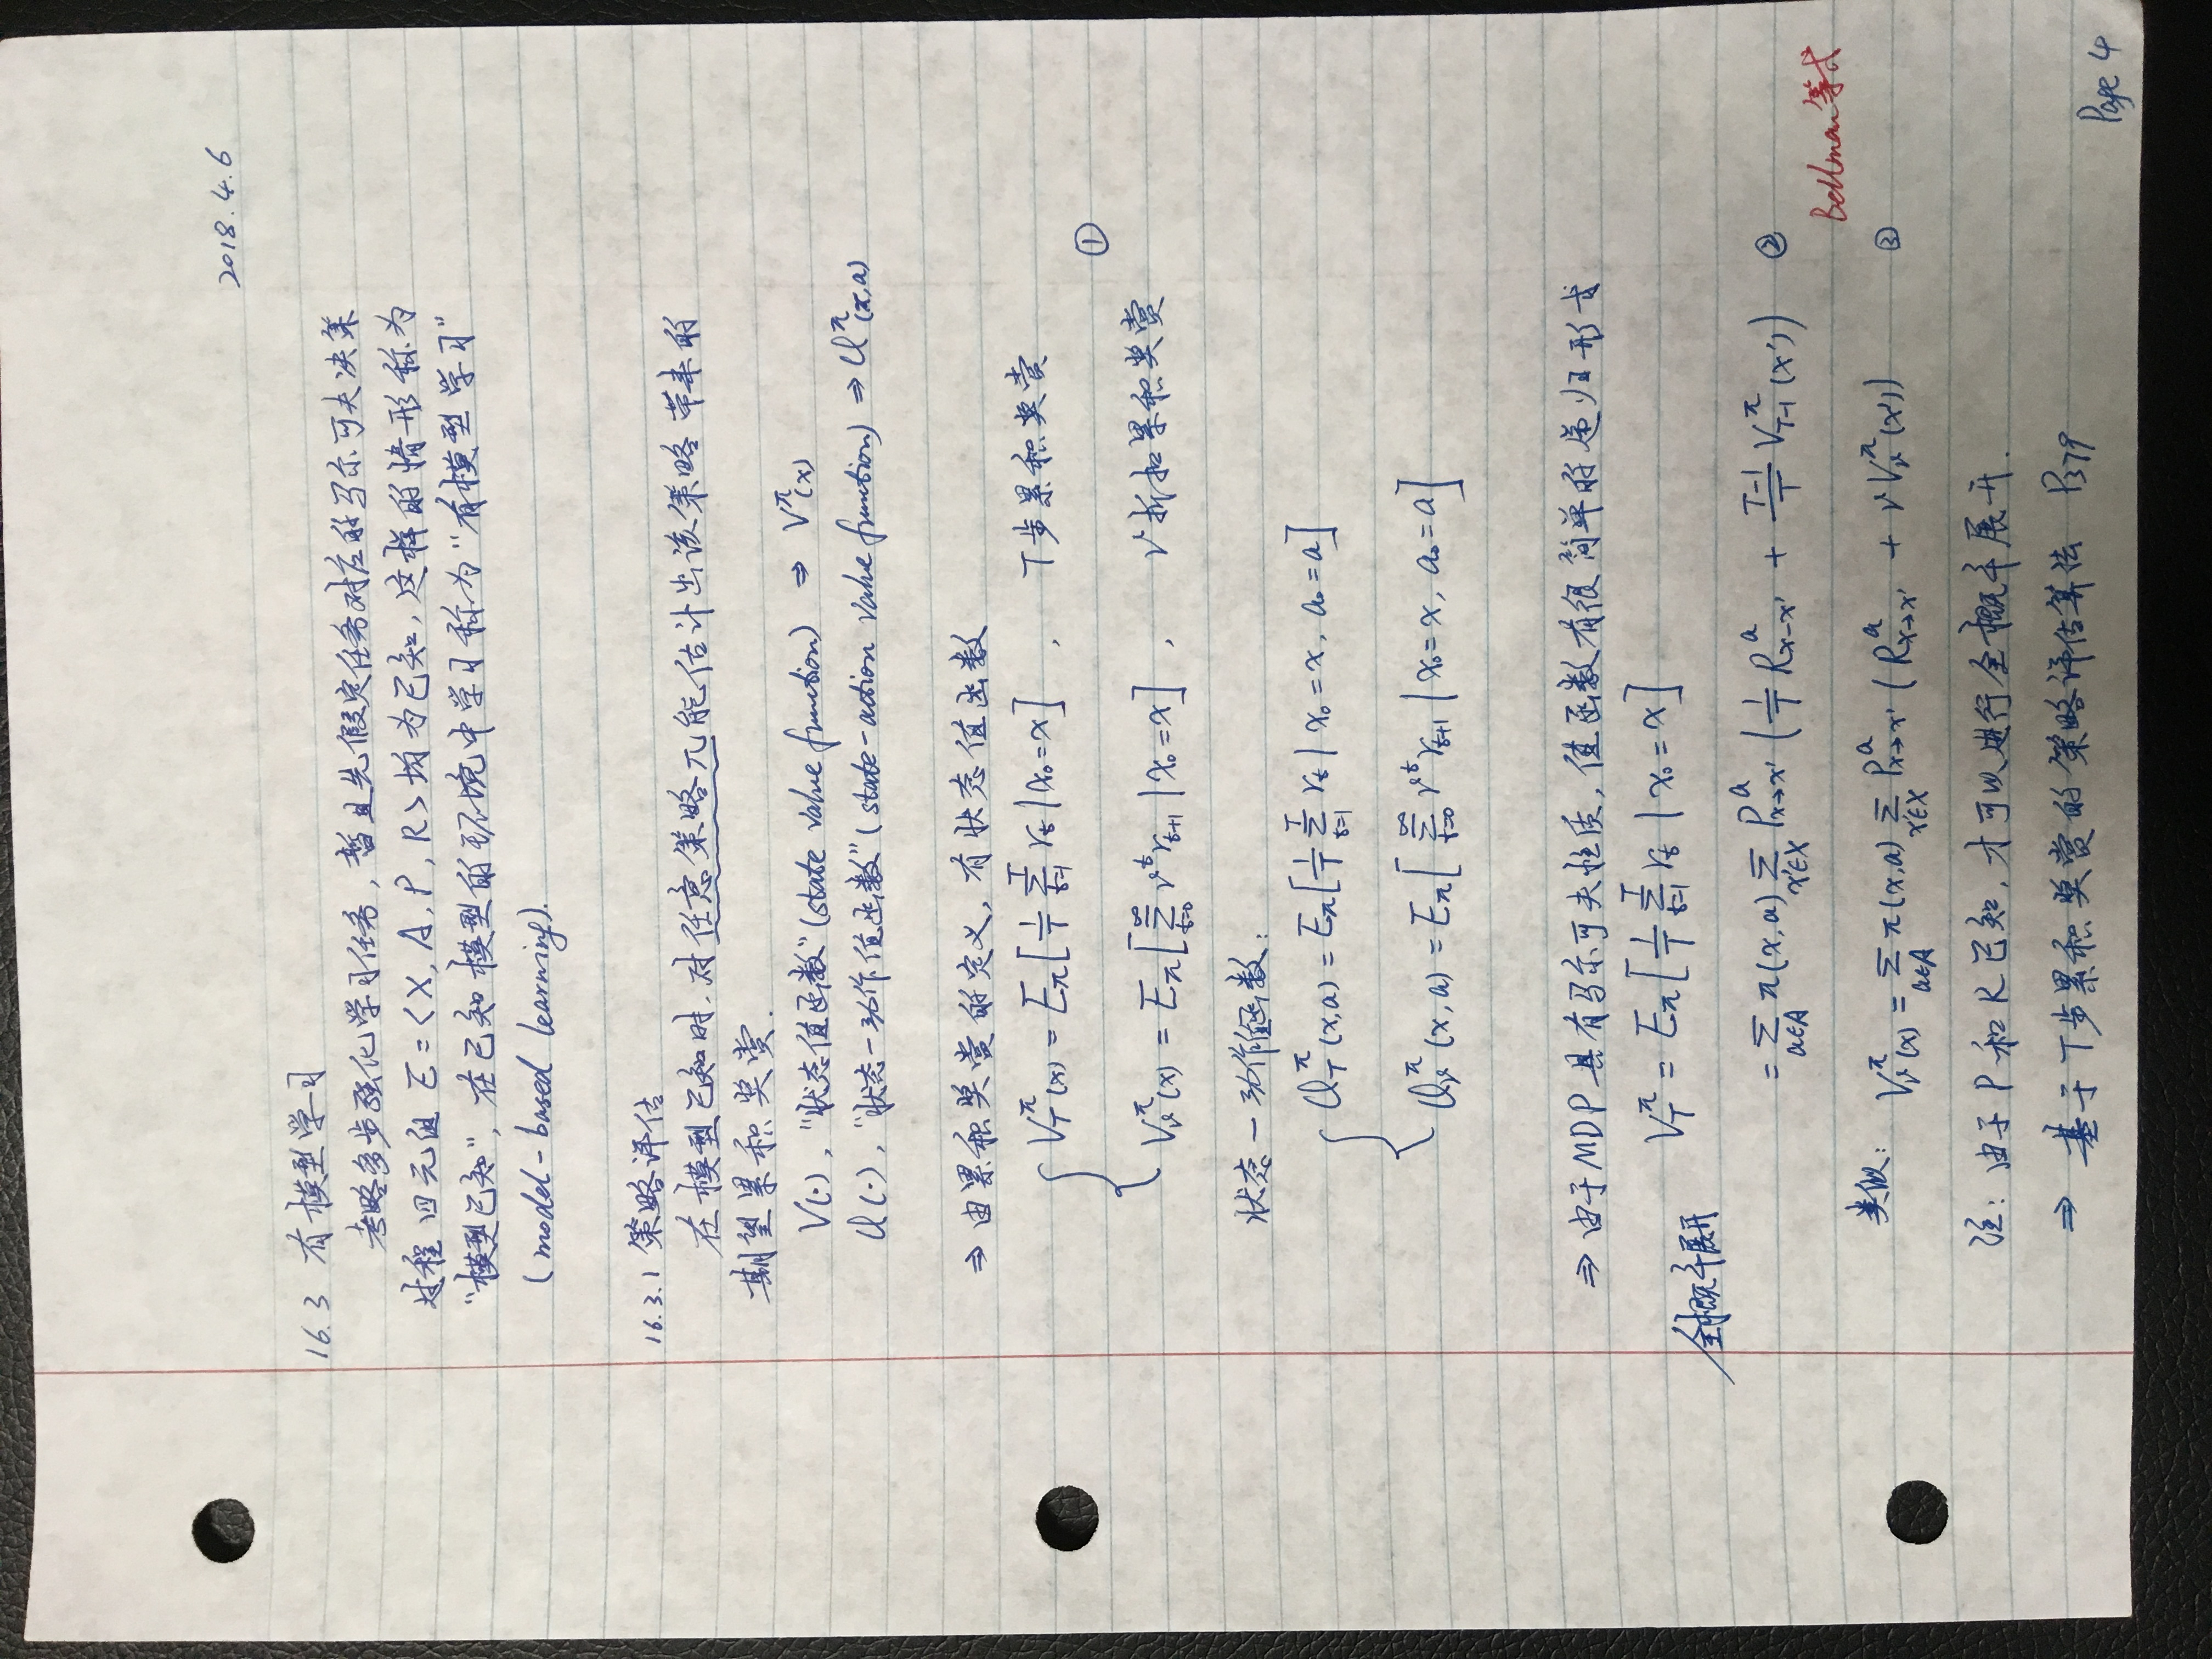 2018.4.6
16.3 有模型学习
考略多步强化学习任务,暂且先假定任务对应的马尔可夫决策
过程四元组 E=<X, A, P, R>均为已知,这样的情形称为
"模型已知",在已知模型的环境中学习称为"有模型学习"
(model-based learning).
16.3.1 策略评估
在模型已知时,对任意策略π能估计出该策略带来的
期望累积奖赏.
V(·), "状态值函数"(state value function) ⇒ V^π(x)
Q(·), "状态-动作值函数"(state-action value function) ⇒ Q^π(x,a)
⇒ 由累积奖赏的定义,有状态值函数
V_T^π(x) = E_π[1/T Σ_{t=1}^T r_t | x_0=x], T步累积奖赏
①
V_γ^π(x) = E_π[Σ_{t=0}^∞ γ^t r_{t+1} | x_0=x], γ折扣累积奖赏
状态-动作值函数:
Q_T^π(x,a) = E_π[1/T Σ_{t=1}^T r_t | x_0=x, a_0=a]
Q_γ^π(x,a) = E_π[Σ_{t=0}^∞ γ^t r_{t+1} | x_0=x, a_0=a]
⇒ 由于MDP具有马尔可夫性质,值函数有很简单的递归形式
V_T^π = E_π[1/T Σ_{t=1}^T r_t | x_0=x]
全概率展开
= Σ_{a∈A} π(x,a) Σ_{x'∈X} P_{x→x'}^a (1/T R_{x-x'}^a + (T-1)/T V_{T-1}^π(x')) ②
Bellman等式
类似: V_γ^π(x) = Σ_{a∈A} π(x,a) Σ_{x'∈X} P_{x→x'}^a (R_{x→x'}^a + γV_γ^π(x')) ③
注:由于P和R已知,才可以进行全概率展开.
⇒ 基于T步累积奖赏的策略评估算法 P379
Page 4